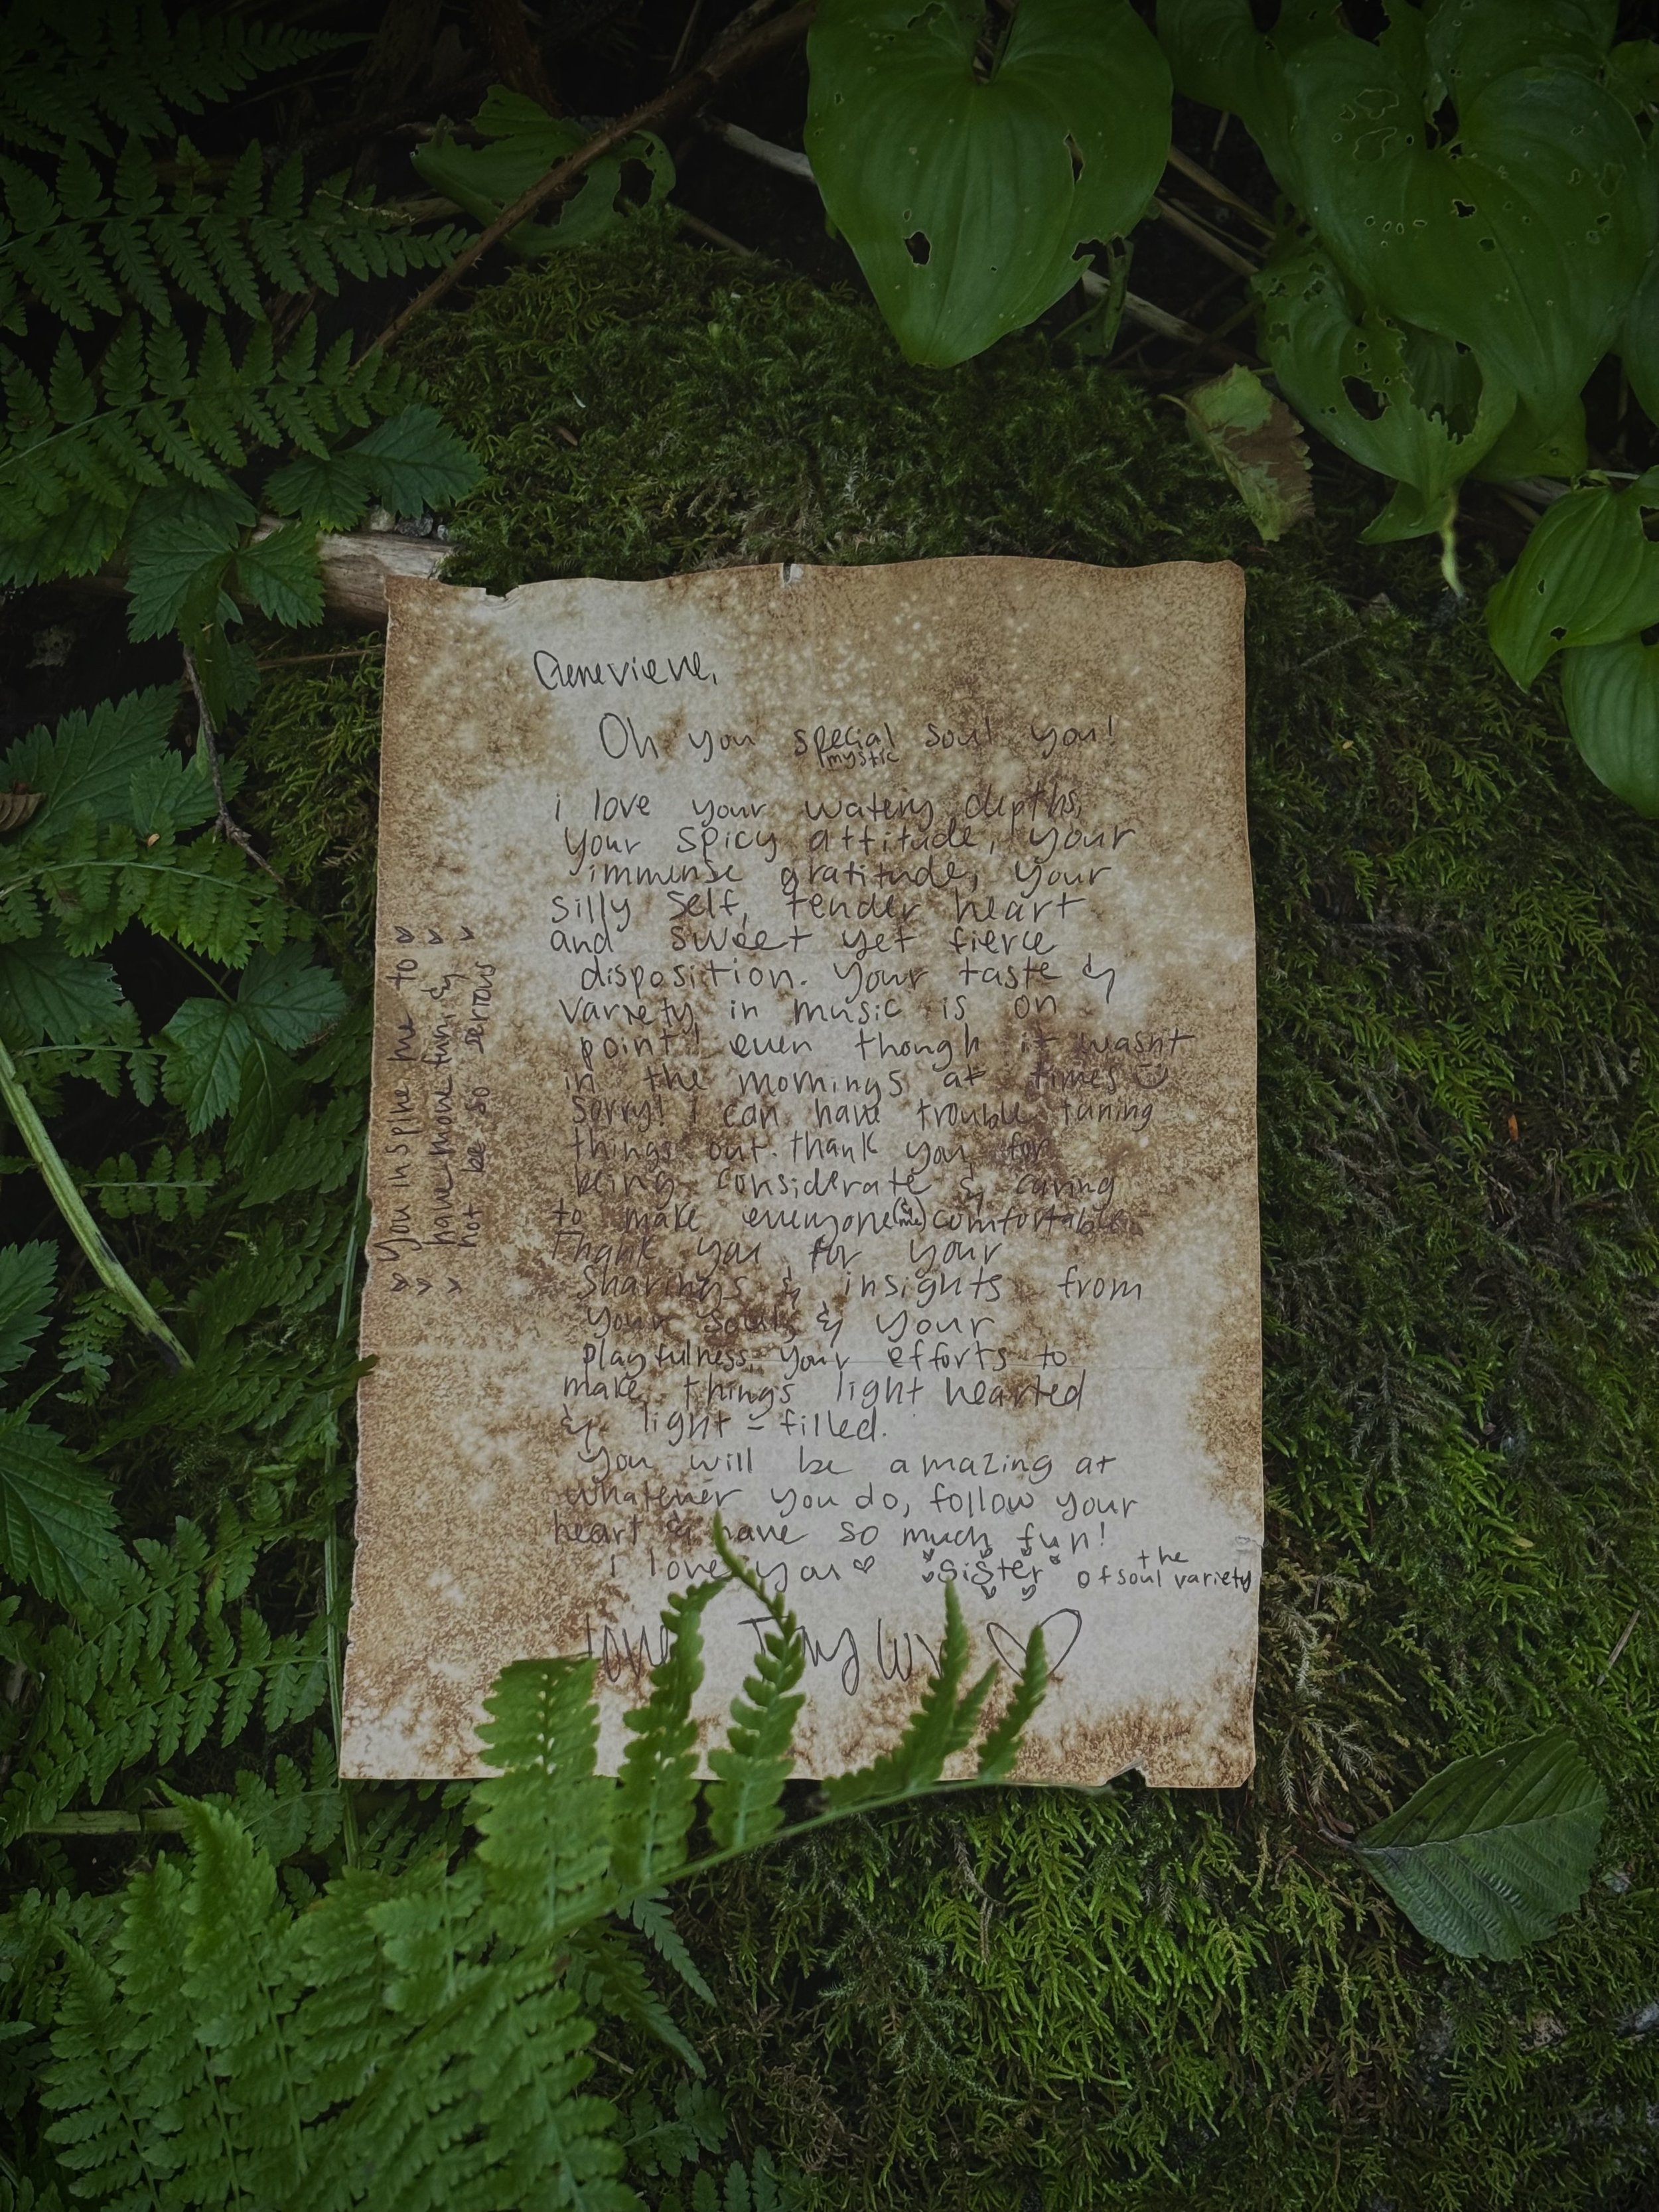 Genevieve,
Oh you special soul you!
mystic
i love your watery depths,
your spicy attitude, your
immense gratitude, your
silly self, tender heart
and sweet yet fierce
disposition. Your taste &
variety in music is on
point! even though it wasnt
in the mornings at times
sorry! i can have trouble tuning
things out. thank you for
being considerate & caring
to make everyone (& me) comfortable
Thank you for your
Sharings & insights from
your soul, & your
playfulness, your efforts to
make things light hearted
& light-filled.
You will be amazing at
whatever you do, follow your
heart & have so much fun!
i love you ♡ Sister of the soul variety
love ♡
you inspire me to
have more fun &
not be so serious